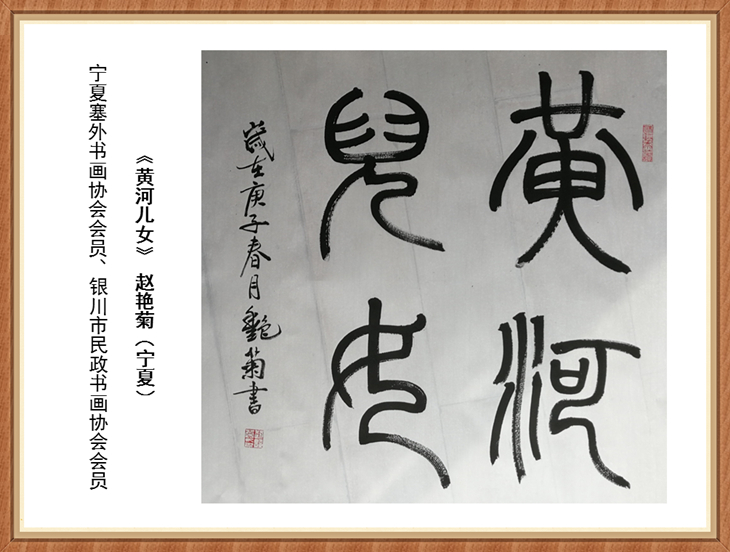 黄河
兒女
歲在庚子春月艷菊書
《黄河儿女》 赵艳菊（宁夏）
宁夏塞外书画协会会员、银川市民政书画协会会员